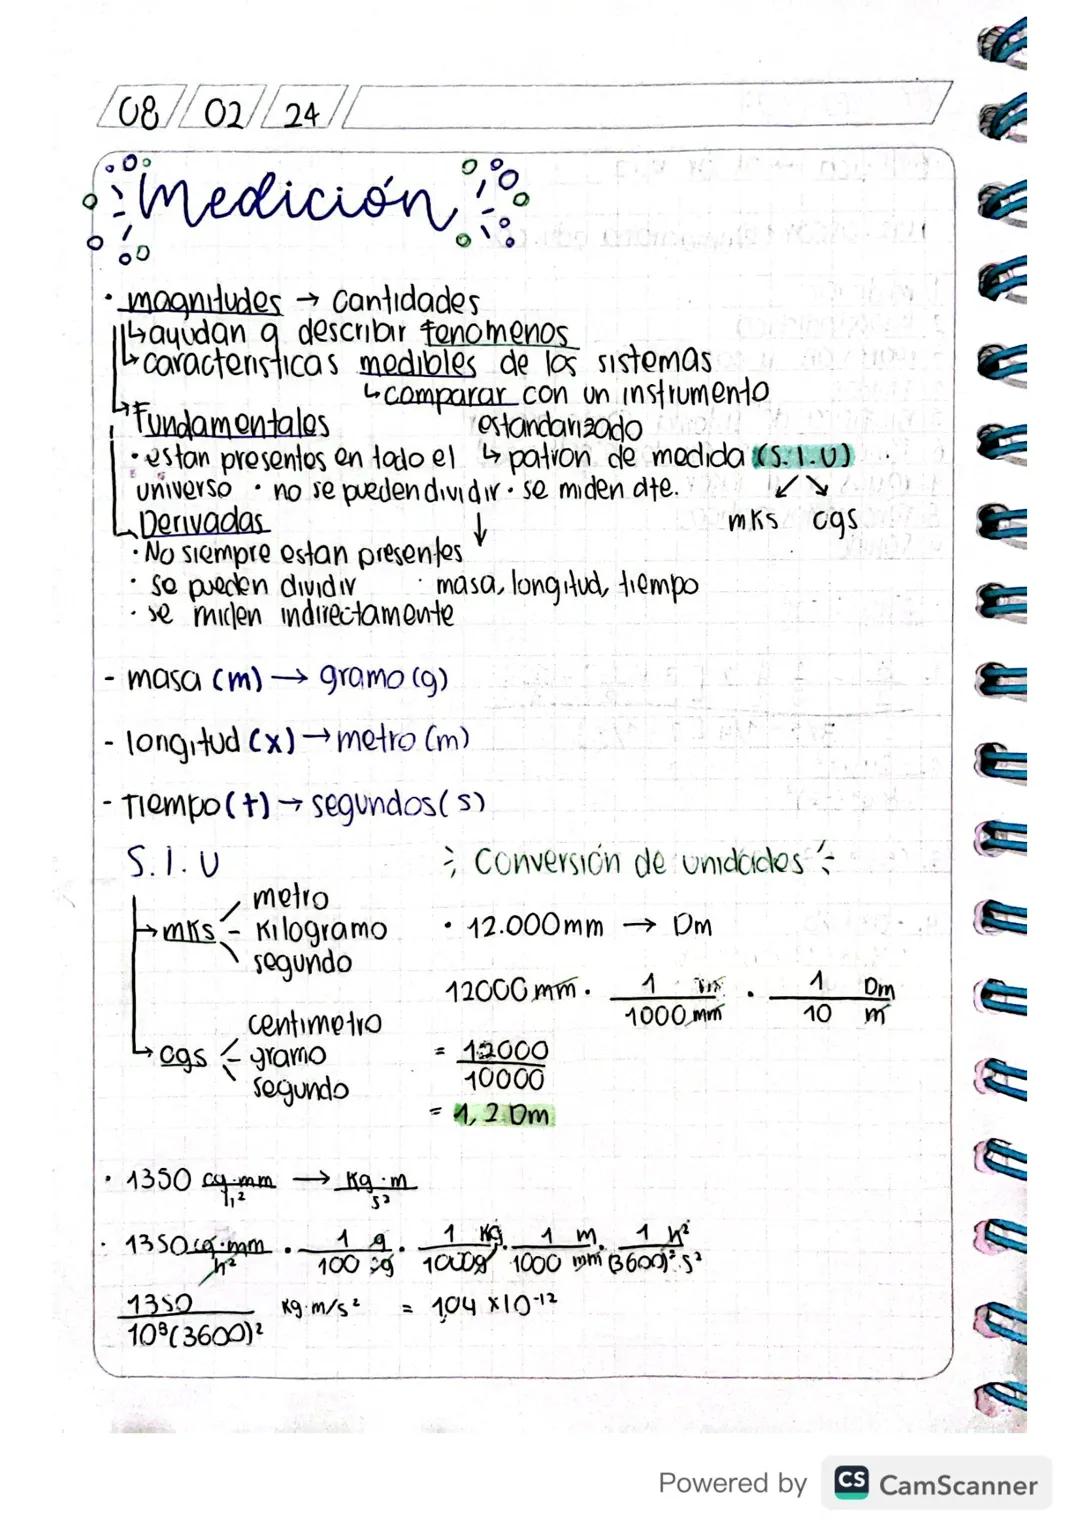 08 / 02 / 24
Medición
• magnitudes → cantidades
↳ ayudan a describir fenomenos
↳ caracteristicas medibles de los sistemas
↳ comparar con un instrumento
estandarizado
↳ patron de medida (S.I.U)
mks cgs
↳ Fundamentales
• estan presentes en todo el
universo • no se pueden dividir • se miden dte.
↓
• masa, longitud, tiempo
Derivadas
• No siempre estan presentes
• se pueden dividir
• se miden indirectamente
- masa (m) → gramo (g)
- longitud (x) → metro (m)
- Tiempo (t) → segundos (s)
S.I.U
→ mks - metro
kilogramo
segundo
→ cgs - centimetro
gramo
segundo
Conversión de unidades
• 12.000mm → Dm
12000 mm · 1 m / 1000 mm · 1 Dm / 10 m
= 12000 / 10000
= 1,2 Dm
• 1350 cg·mm / h² → Kg·m / s²
• 1350 cg·mm / h² · 1 g / 100 cg · 1 Kg / 1000g · 1 m / 1000 mm · 1 h² / (3600)² s²
1350 / 10⁸(3600)² Kg·m/s² = 1,04 x10⁻¹²
Powered by CS CamScanner